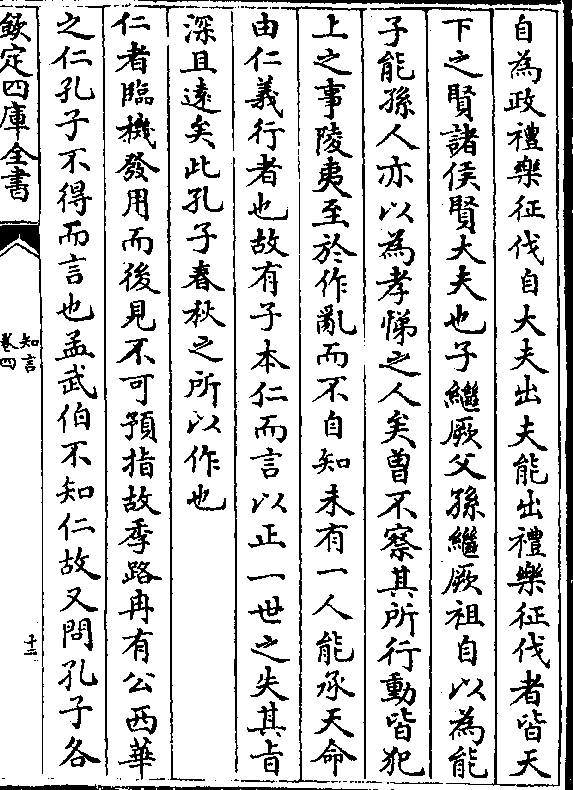 自為政禮樂征伐自大夫出夫能出禮樂征伐者皆天
下之賢諸侯賢大夫也子繼厥父孫繼厥祖自以為能
子能孫人亦以為孝悌之人矣曾不察其所行動皆犯
上之事陵夷至於作亂而不自知未有一人能承天命
由仁義行者也故有子本仁而言以正一世之失其旨
深且遠矣此孔子春秋之所以作也
仁者臨機發用而後見不可預指故季路冉有公西華
之仁孔子不得而言也孟武伯不知仁故又問孔子各
欽定四庫全書
知言
卷四
十二